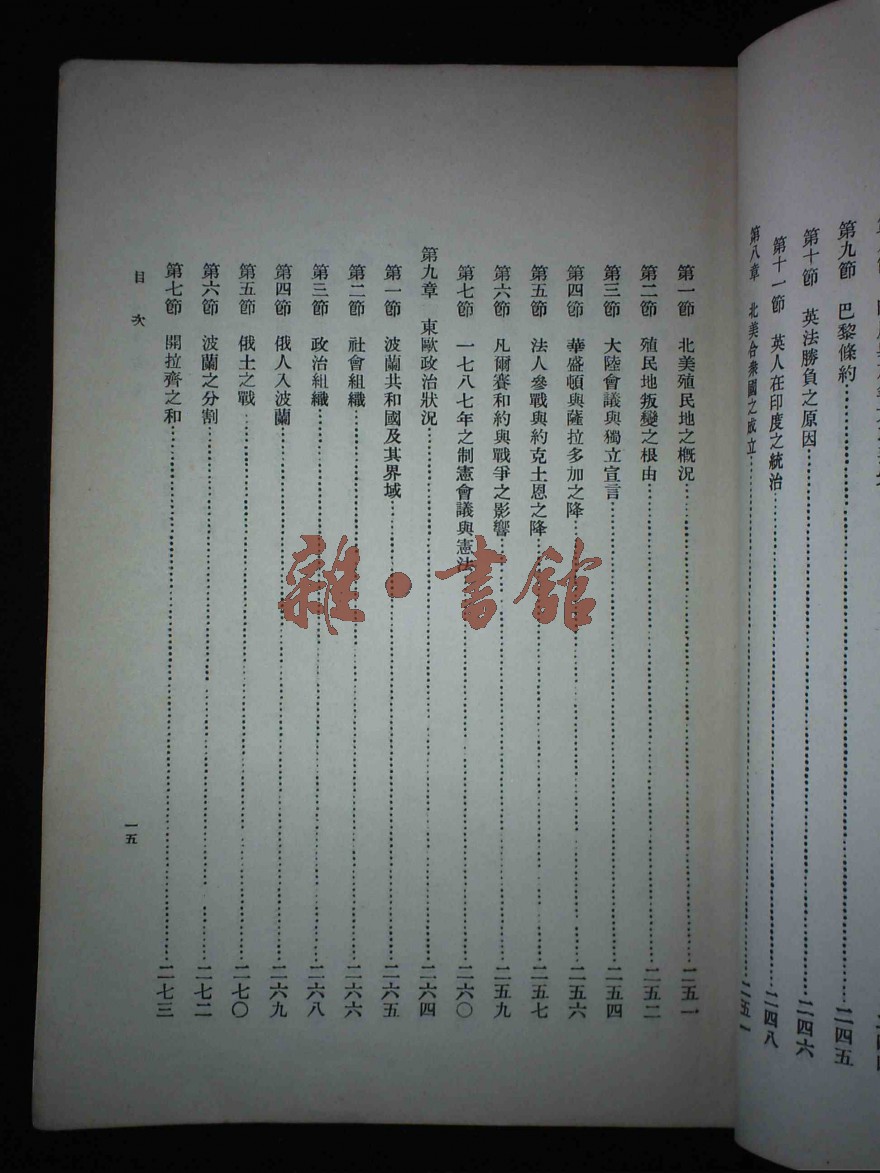 第九節 巴黎條約……二四五
第十節 英法勝負之原因……二四六
第十一節 英人在印度之統治……二四八
第八章 北美合衆國之成立……二五一
第一節 北美殖民地之概況……二五一
第二節 殖民地叛變之根由……二五二
第三節 大陸會議與獨立宣言……二五四
第四節 華盛頓與薩拉多加之降……二五六
第五節 法人參戰與約克土恩之降……二五七
第六節 凡爾賽和約與戰爭之影響……二五九
第七節 一七八七年之制憲會議與憲法……二六〇
第九章 東歐政治狀況……二六四
第一節 波蘭共和國及其界域……二六五
第二節 社會組織……二六六
第三節 政治組織……二六八
第四節 俄人入波蘭……二六九
第五節 俄土之戰……二七〇
第六節 波蘭之分割……二七二
第七節 開拉齊之和……二七三
目次
一五
雜·書館